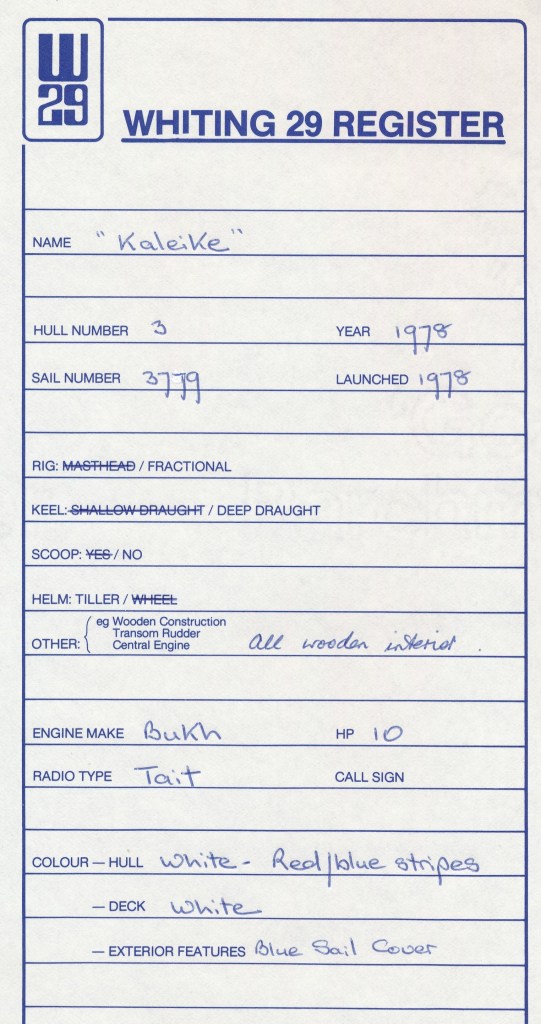 W
29
WHITING 29 REGISTER
NAME "Kaleike"
HULL NUMBER 3 YEAR 1978
SAIL NUMBER 3779 LAUNCHED 1978
RIG: MASTHEAD / FRACTIONAL
KEEL: SHALLOW DRAUGHT / DEEP DRAUGHT
SCOOP: YES / NO
HELM: TILLER / WHEEL
eg Wooden Construction
Transom Rudder
OTHER: Central Engine All wooden interior.
ENGINE MAKE Bukh HP 10
RADIO TYPE Tait CALL SIGN
COLOUR — HULL White - Red/blue stripes
— DECK White
— EXTERIOR FEATURES Blue Sail Cover